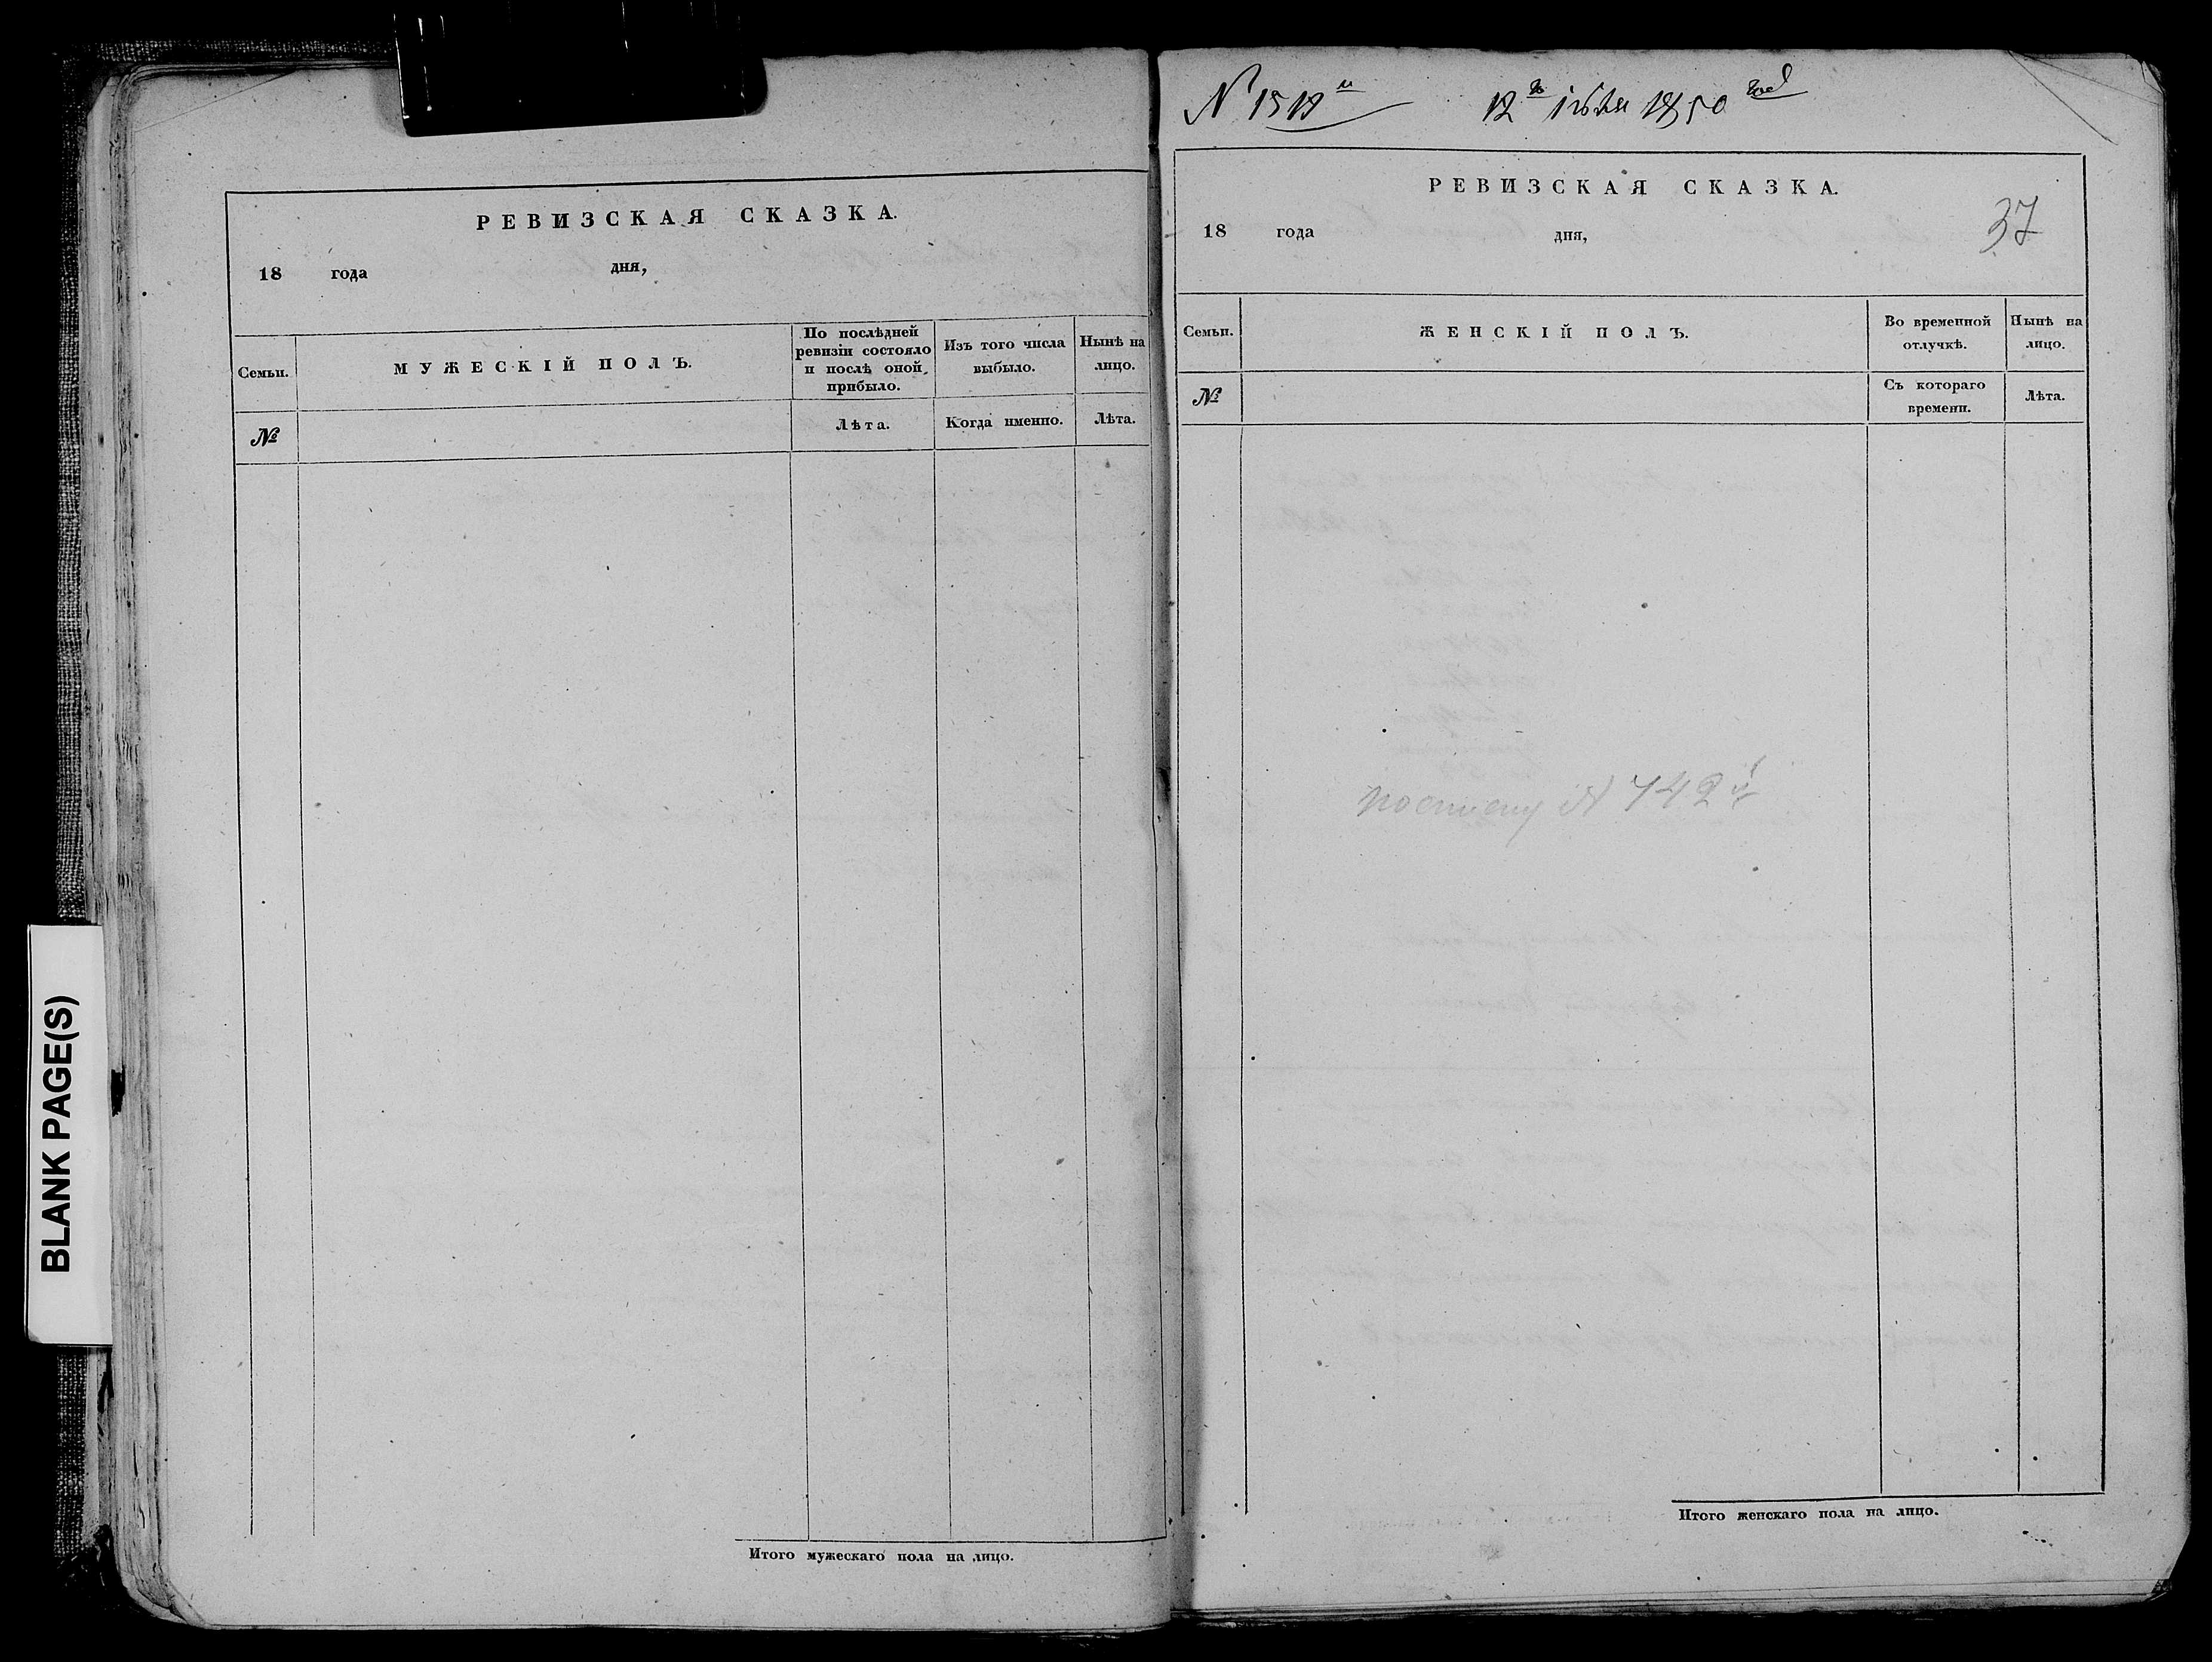 РЕВИЗСКАЯ СКАЗКА.
18 года дня,
Семьи.
МУЖЕСКІЙ ПОЛЪ.
По послѣдней
ревизіи состояло
и послѣ оной
прибыло.
Изъ того числа
выбыло.
Нынѣ на
лицо.
№
Лѣта.
Когда именно.
Лѣта.
Итого мужескаго пола на лицо.
BLANK PAGE(S)
1850
РЕВИЗСКАЯ СКАЗКА.
37
18 года дня,
Семьи.
ЖЕНСКІЙ ПОЛЪ.
Во временной
отлучкѣ.
Нынѣ на
лицо.
№
Съ котораго
времени.
Лѣта.
№ 742
Итого женскаго пола на лицо.